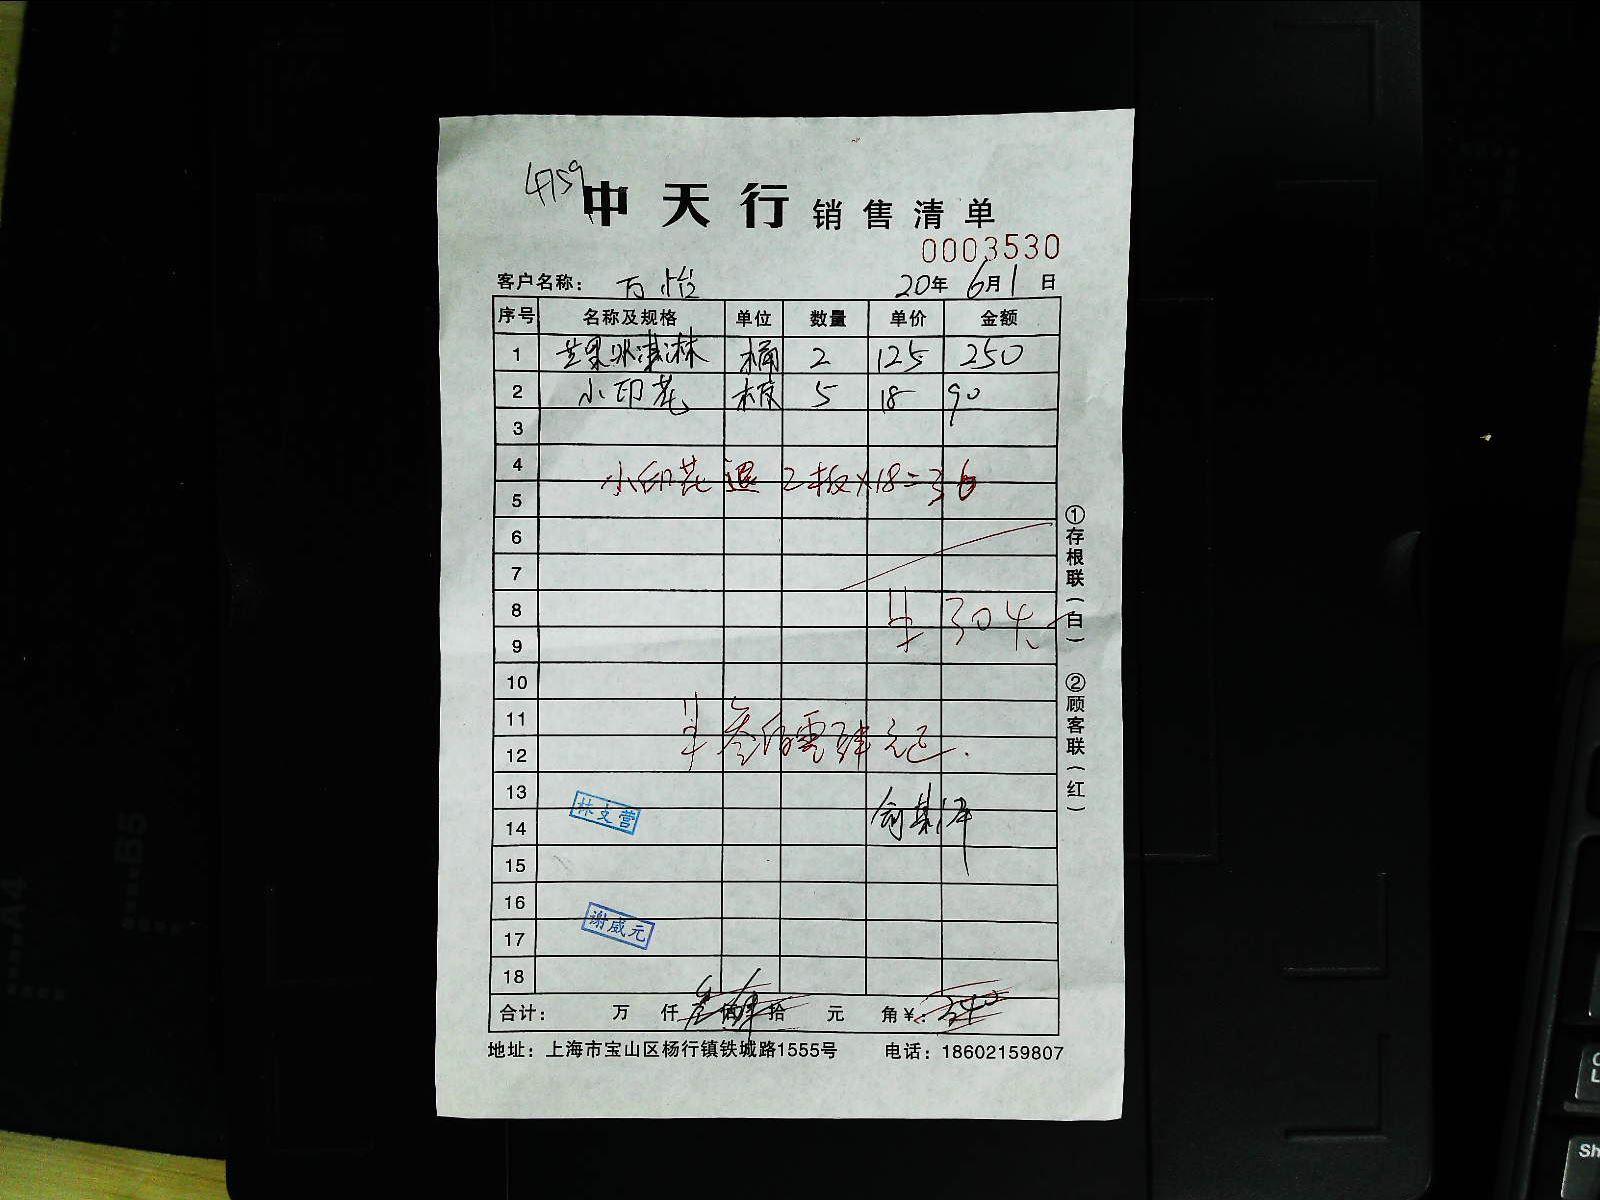 4759
中天行 销售清单
0003530
客户名称： 万怡 20年 6月 1日
序号 名称及规格 单位 数量 单价 金额
1 芒果冰淇淋 桶 2 125 250
2 小印花 板 5 18 90
3
4
小印花 退 2板×18=36
5
6
7
8
实 304元
9
10
11
实叁佰零肆元正.
12
13
林文营
14
15
16
谢威元
17
18
合计： 万 仟 叁佰肆拾 元 角¥： 340
地址：上海市宝山区杨行镇铁城路1555号 电话：18602159807
①存根联（白）
②顾客联（红）